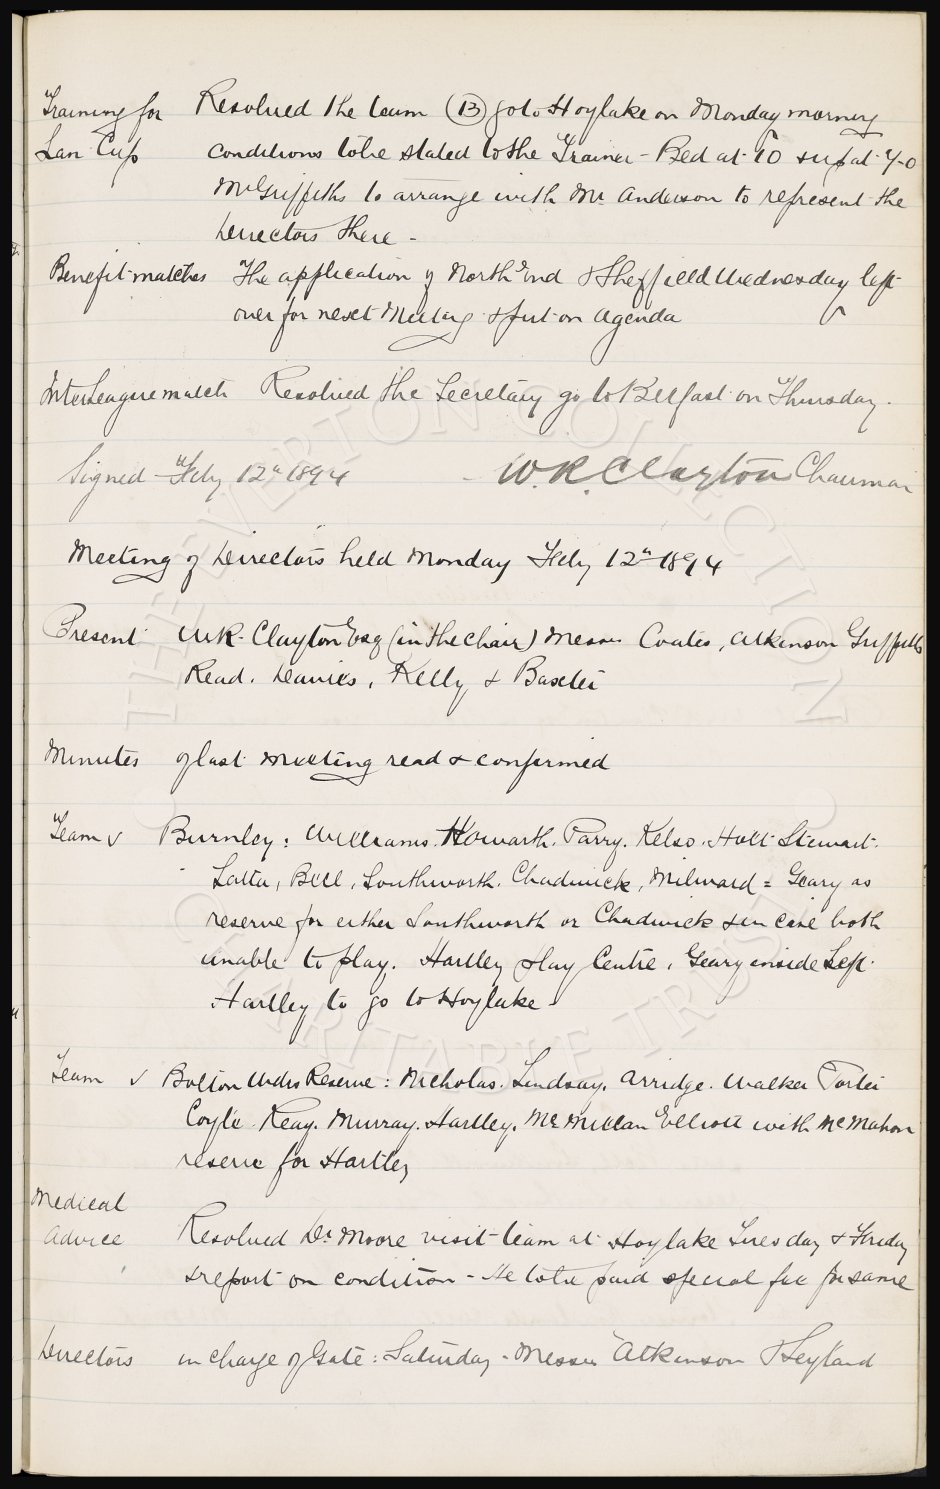 Training for Resolved the team (13) go to Hoylake on Monday morning
Lan Cup conditions to be stated to the Trainer - Bed at 10 & up at 7-0
Mr Griffiths to arrange with Mr Anderson to represent the
Directors there -
Benefit matches The application of North End & Sheffield Wednesday left
over for next Meeting & put on Agenda
Inter League match Resolved the Secretary go to Belfast on Thursday.
Signed - Feby 12th 1894 - W.R. Clayton Chairman
Meeting of Directors held Monday Feby 12th 1894
Present W R Clayton Esq (in the Chair) Messrs Coates, Atkinson Griffiths
Read. Davies, Kelly & Baxter
Minutes of last meeting read & confirmed
Team v Burnley: Williams. Howarth. Parry. Kelso. Holt Stewart.
Latta, Bell, Southworth. Chadwick, Milward = Geary as
reserve for either Southworth or Chadwick & in case both
unable to play. Hartley play Centre, Geary inside Left.
Hartley to go to Hoylake
Team v Bolton Wdrs Reserve: Nicholas. Lindsay. Arridge. Walker
Coyle. Reay. Murray. Hartley. McMillan Elliott with McMahon
reserve for Hartley
Medical
Advice Resolved Dr Moore visit team at Hoylake Tuesday & Friday
& report on condition - He to be paid special fee for same
Directors in charge of Gate: Saturday - Messrs Atkinson & Leyland
THE EVERTON COLLECTION
CHARITABLE TRUST